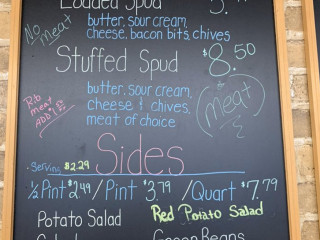 Loaded Spud
No meat
butter, sour cream,
cheese, bacon bits, chives
Stuffed Spud $8.50
butter, sour cream,
cheese & chives,
meat of choice
(meat)
Rib
meat
ADD 1
Sides
- Serving $2.29
1/2 Pint $2.49 / Pint $3.79 / Quart $7.79
Potato Salad Red Potato Salad
Green Beans